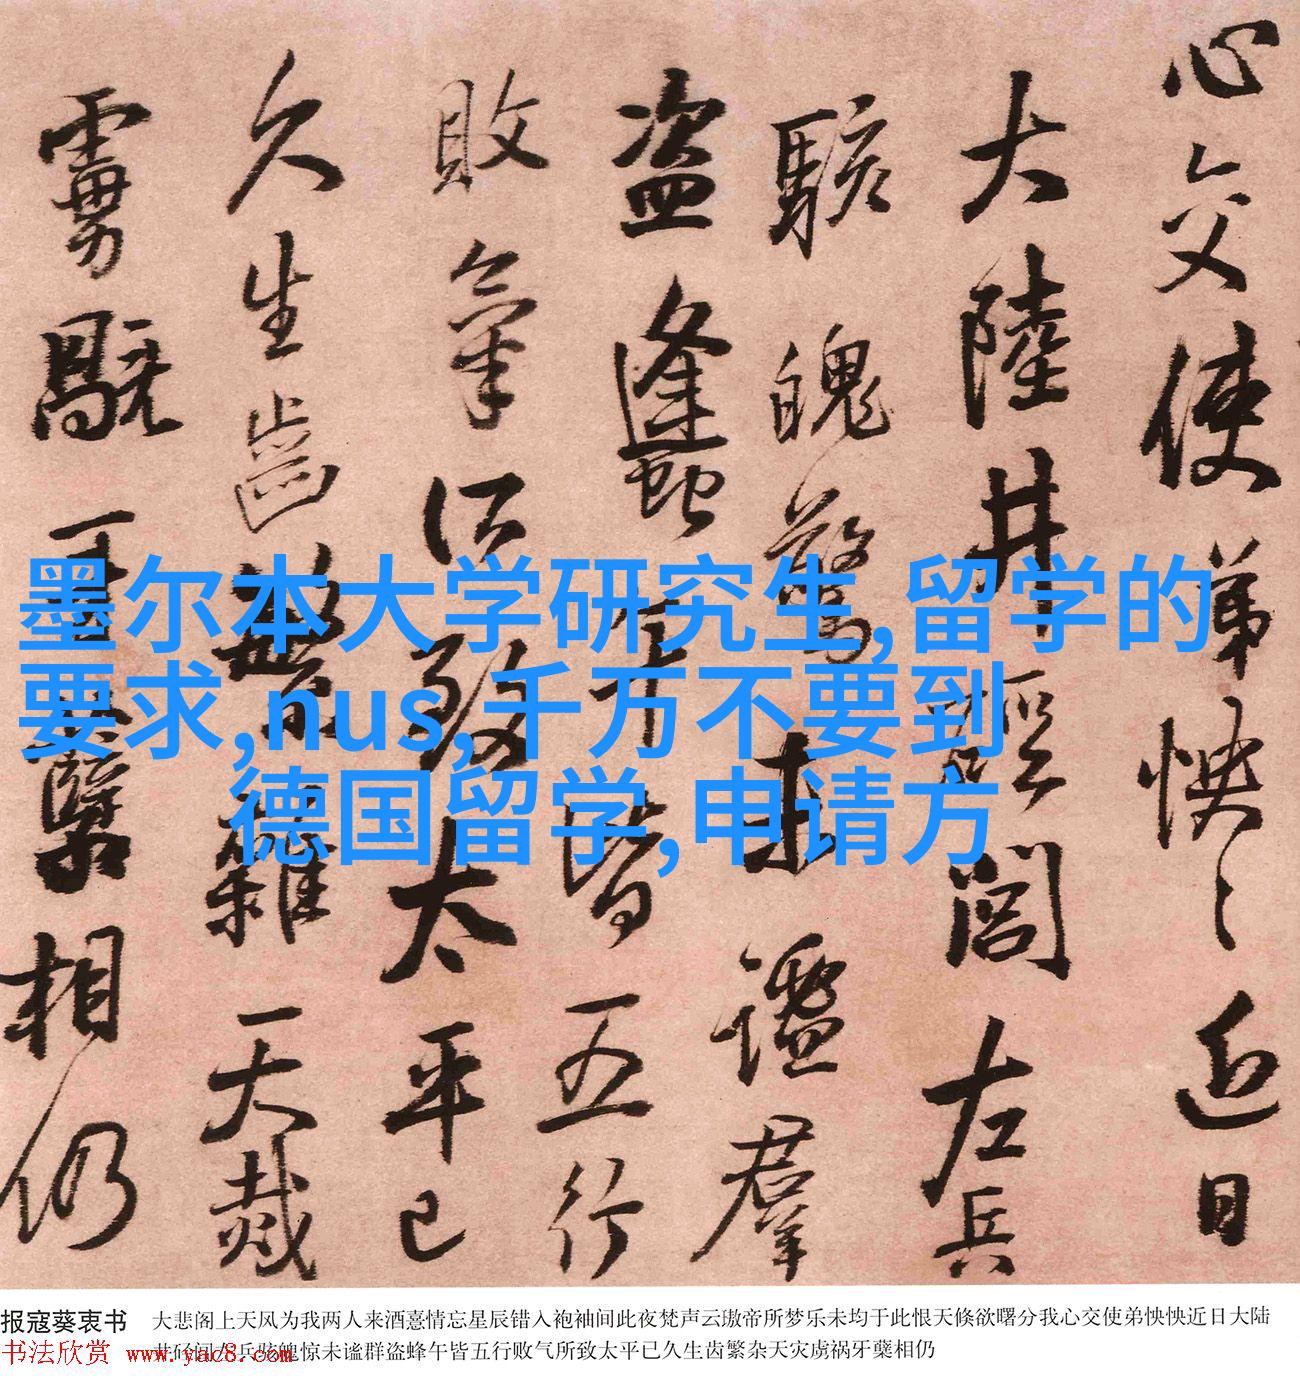 心交使弟怏〻近日
大陸井陘閭左兵
駭魄驚未謐羣
盗蠭午皆五行
敗氣所致太平已
久生齒繁雜天烖
虜旤牙孽相仍
墨尔本大学研究生,留学的
要求,nus,千万不要到
德国留学,申请方
报寇葵衷书 大悲阁上天风为我两人来酒憙情忘星辰错入袍袖间此夜梵声云璈帝所梦乐未均于此恨天倏欲曙分我心交使弟怏怏近日大陆
兵骇魄惊未谧群盗蜂午皆五行败气所致太平已久生齿繁杂天灾虏祸牙蘖相仍
书法欣赏 www.yac8.com